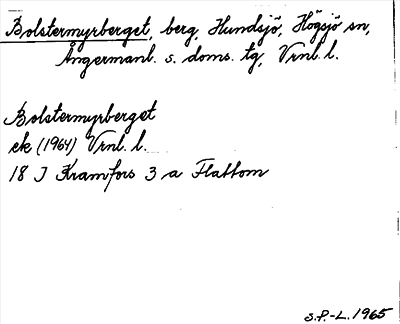 Bolstermyrberget, berg, Hundsjö, Högsjö sn,
Ångermanl. s. doms. tg, Vrnl. l.
Bolstermyrberget
ek (1964) Vrnl. l.
18 J Kramfors 3 a Flattom
S.P.-L. 1965